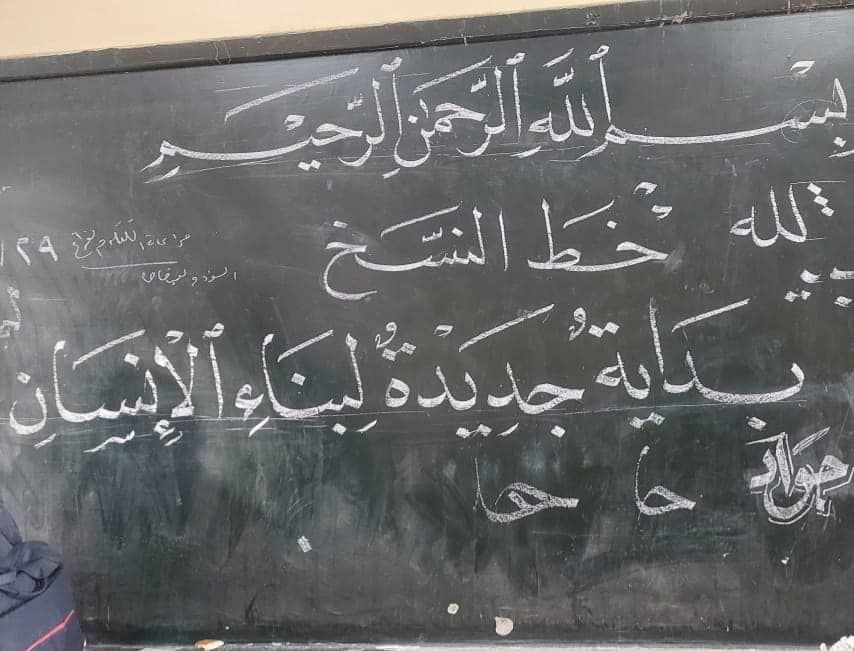 بِسْمِ ٱللَّهِ ٱلرَّحْمَٰنِ ٱلرَّحِيمِ
لله خط النسخ
١٢٩
بداية جديدة لبناء الإنسان
حا ها